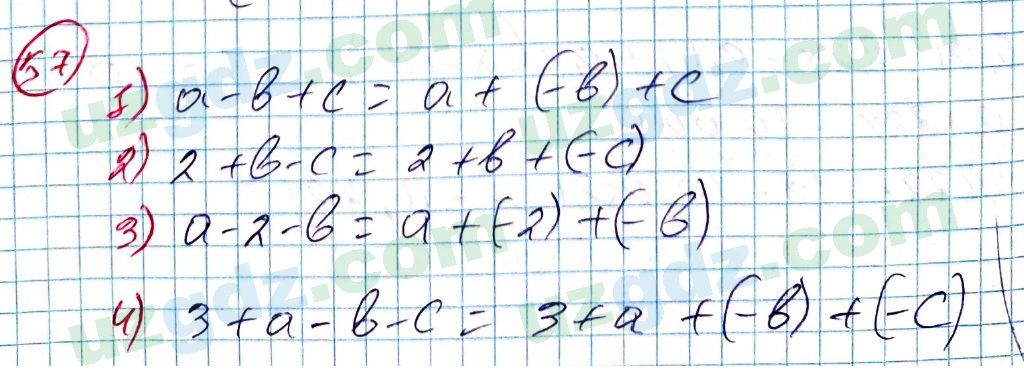 57
1) a - b + c = a + (-b) + c
2) 2 + b - c = 2 + b + (-c)
3) a - 2 - b = a + (-2) + (-b)
4) 3 + a - b - c = 3 + a + (-b) + (-c)
uzgdz.com uzgdz.com
uzgdz.com uzgdz.com